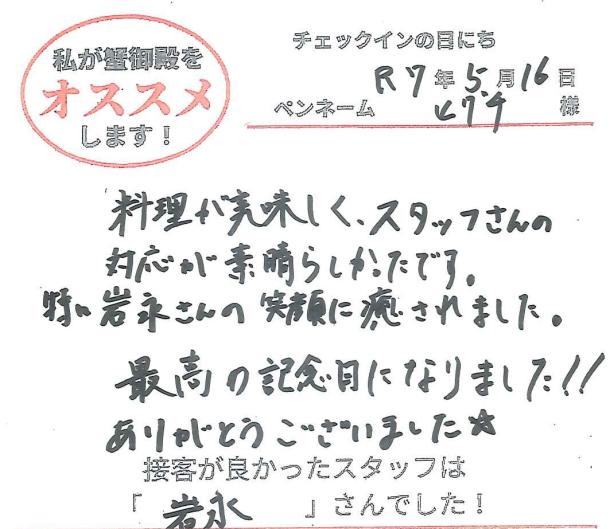 私が蟹御殿を
オススメ
します！
チェックインの日にち
R7年5月16日
ペンネーム 様
料理が美味しく、スタッフさんの
対応が素晴らしかったです。
特に岩永さんの笑顔に癒されました。
最高の記念日になりました!!
ありがとうございました☆
接客が良かったスタッフは
「岩永」さんでした！